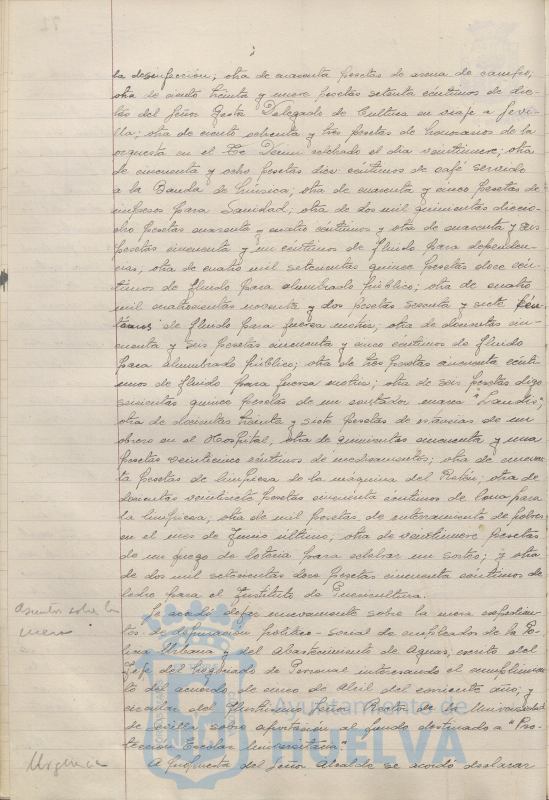 la desinfección; otra de cuarenta pesetas de arena de campo;
otra de ciento treinta y nueve pesetas setenta céntimos de die-
tas del Señor Gestor Delegado de Cultura en viaje a Sevi-
lla; otra de ciento setenta y tres pesetas de honorarios de la
orquesta en el Te Deum celebrado el día veintinueve; otra
de cincuenta y ocho pesetas diez céntimos de café servido
a la Banda de Música; otra de cuarenta y cinco pesetas de
impresos para Sanidad; otra de dos mil quinientas diecio-
cho pesetas cuarenta y cuatro céntimos y otra de cuarenta y seis
pesetas cincuenta y un céntimos de fluido para dependen-
cias; otra de cuatro mil setecientas quince pesetas doce cén-
timos de fluido para alumbrado público; otra de cuatro
mil cuatrocientas noventa y dos pesetas sesenta y siete cén-
timos de fluido para fuerza motriz; otra de doscientas cin-
cuenta y seis pesetas cincuenta y cinco céntimos de fluido
para alumbrado público; otra de tres pesetas cincuenta cénti-
mos de fluido para fuerza motriz; otra de seis pesetas digo
seiscientas quince pesetas de un contador marca "Landis";
otra de doscientas treinta y siete pesetas de estancias de un
obrero en el Hospital; otra de quinientas cincuenta y una
pesetas veinticinco céntimos de medicamentos; otra de cincuen-
ta pesetas de limpieza de la máquina del Reloj; otra de
doscientas veintisiete pesetas cincuenta céntimos de lona para
la limpieza; otra de mil pesetas de enterramiento de pobres
en el mes de Junio último; otra de veintinueve pesetas
de un juego de lotería para celebrar un sorteo; y otra
de dos mil setecientas doce pesetas cincuenta céntimos de
leche para el Instituto de Puericultura.
Asuntos sobre la
mesa
Se acordó dejar nuevamente sobre la mesa expedien-
tes de depuración político-social de empleados de la Po-
licía Urbana y del Abastecimiento de Aguas, escrito del
Jefe del Negociado de Personal interesando el cumplimien-
to del acuerdo de cinco de Abril del corriente año; y
circular del Ilustrísimo Señor Rector de la Universidad
de Sevilla sobre aportación al fondo destinado a "Pro-
tección Escolar Universitaria".
Urgencia
A propuesta del Señor Alcalde se acordó declarar
Ayuntamiento de
HUELVA